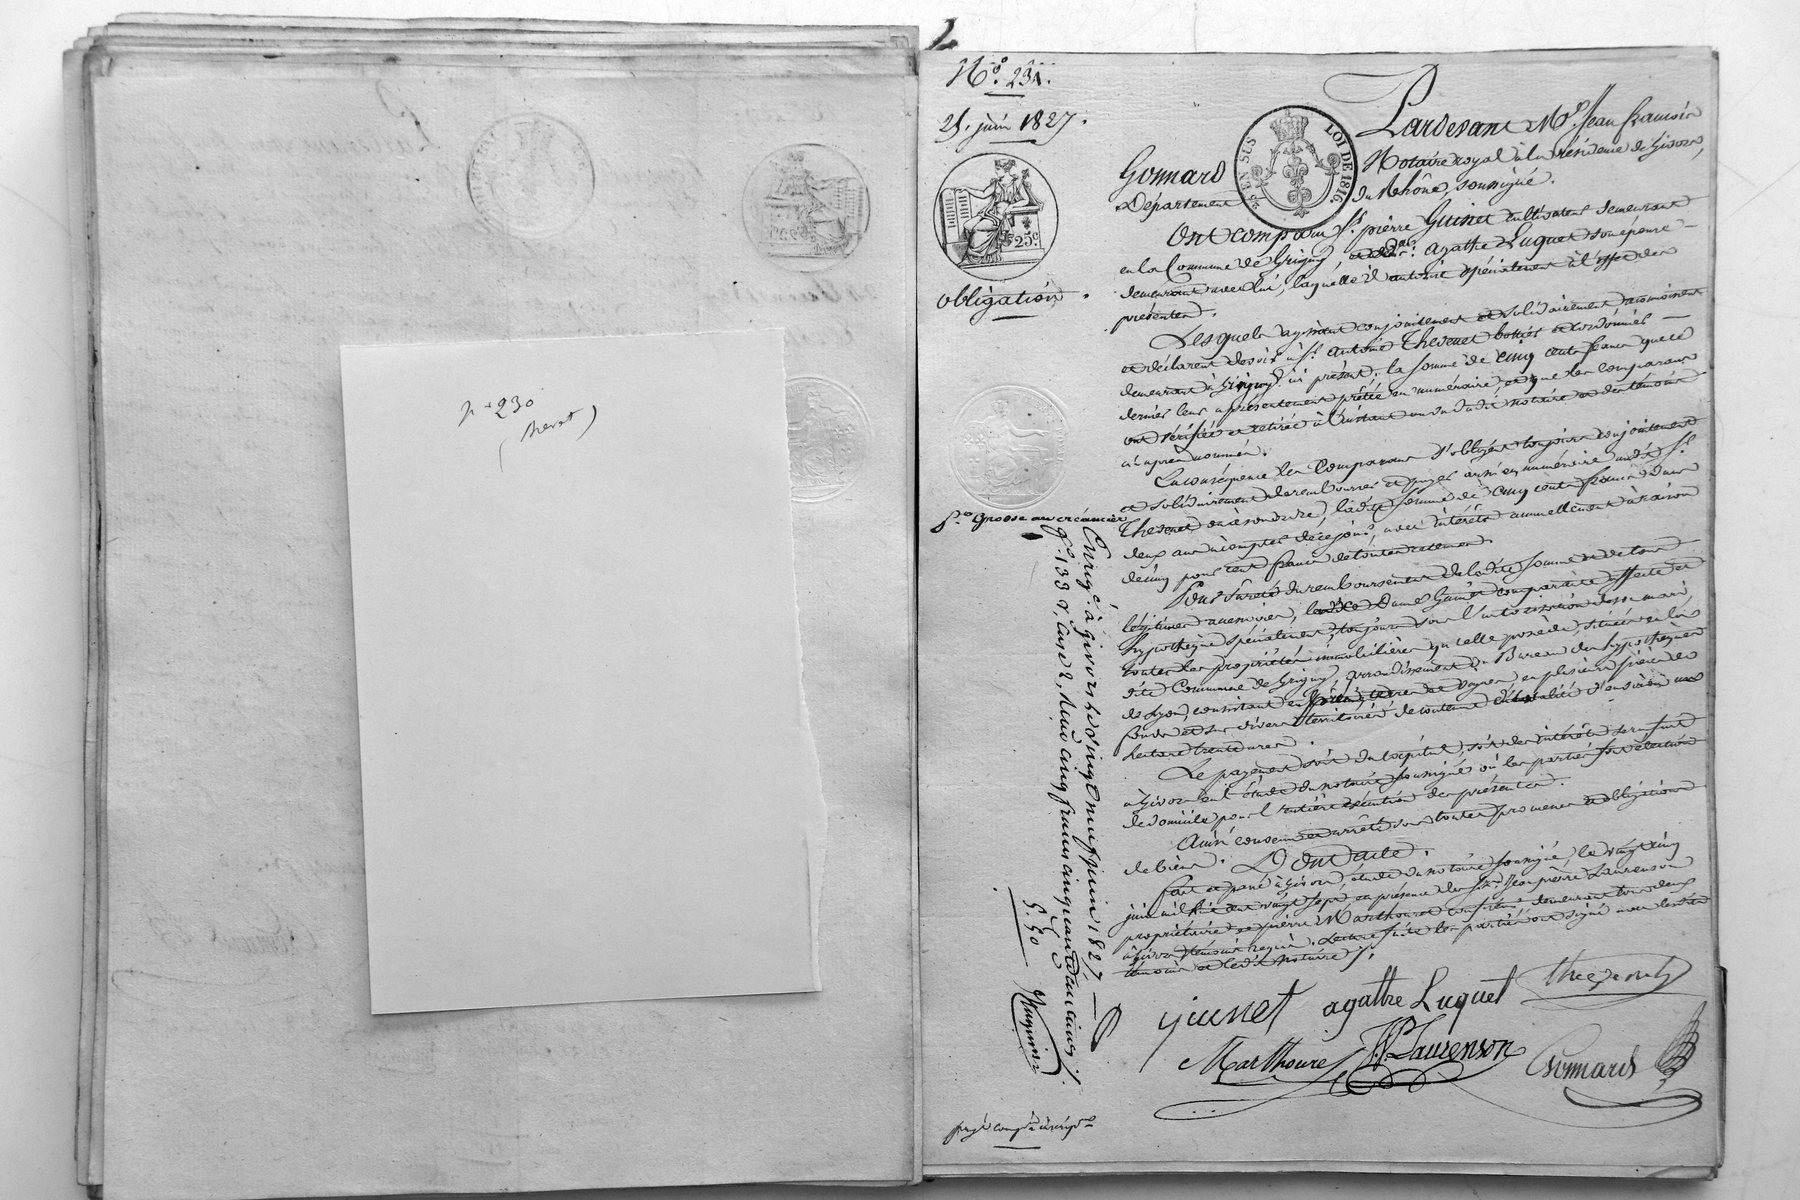 n° 230
(Brevet)
N° 231.
25. juin 1827.
25c
obligation.
p.re Grosse au créancier
Enrég.é à givors le vingt neuf juin 1827
f° 133 v. case 2, Reçu cinq francs cinquante centimes
5. 50
EN SUS
LOI DE 1816
Pardevant M.e Jean françois
Gonnard Notaire royal à la résidence de Givors,
Département du Rhône, soussigné.
Ont comparu S.r pierre Guinet cultivateur demeurant
en la Commune de Grigny, et D.e agathe Luquet son épouse
demeurant avec lui, laquelle il autorise spécialement à l'effet des
présentes.
Lesquels agissant conjointement et solidairement reconnoissent
et déclarent devoir à S.r antoine Thevenet
demeurant à Grigny ici présent, la somme de cinq cents francs que ce
dernier leur a présentement prêtée en numéraire, et que les comparans
ont vérifiée et retirée à l'instant au vu dudit notaire et des témoins
ci après nommés.
En conséquence les Comparans s'obligent toujours conjointement
et solidairement de rembourser et payer aussi en numéraire audit S.r
Thevenet ou à son ordre, ladite somme de cinq cents francs dans
deux ans à compter de ce jour, avec intérêts annuellement à raison
de cinq pour cent francs de toutes retenues.
Pour Sureté du remboursement de ladite somme et de tous
légitimes accessoires, Dame Guinet comparante affecte et
hypothèque spécialement, toujours sous l'autorisation de son mari,
toutes les propriétés immobilières qu'elle possède, situées en la
dite Commune de Grigny, arrondissement et Bureau des hypothèques
de Lyon, consistant en terres et vignes en plusieurs pièces de
fonds et sur divers territoires, de contenue d'environ un
hectare trente ares.
Le payement soit du capital, soit des intérêts sera fait
à Givors en l'étude du notaire soussigné où les parties font élection
de domicile pour l'entière exécution des présentes.
Ainsi convenu et arrêté sous toutes promesses et obligations
de biens. Dont acte.
fait et passé à Givors, étude du notaire soussigné, le vingt cinq
juin mil huit cent vingt sept en présence de S.rs Jean pierre Laurenson
propriétaire et pierre Marthouret demeurant tous deux
à Givors témoins requis. Lecture faite les parties ont signé avec lesdits
témoins et ledit notaire.
guinet agathe Luquet thevenet
Marthouret J.P. Laurenson Gonnard